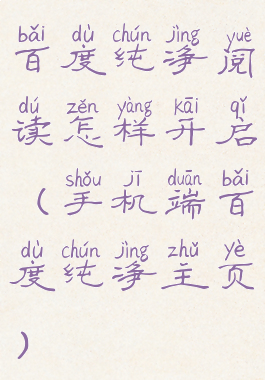 bǎi dù chún jìng yuè
百度纯净阅
dú zěn yàng kāi qǐ
读怎样开启
shǒu jī duān bǎi
（手机端百
dù chún jìng zhǔ yè
度纯净主页
）